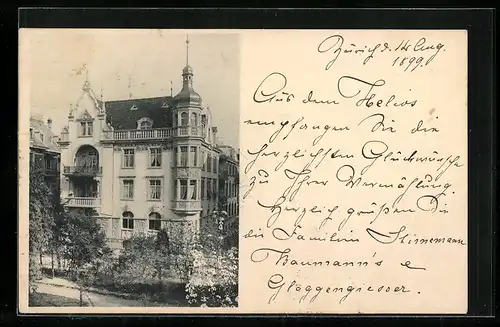 Zürich d. 14 Aug.
1899.
Aus dem Helios
empfangen Sie die
herzlichsten Glückwünsche
zu Ihrer Vermählung.
Herzlich grüßen Sie
die Familien Stirnemann
Baumann's e
Gloggengiesser.